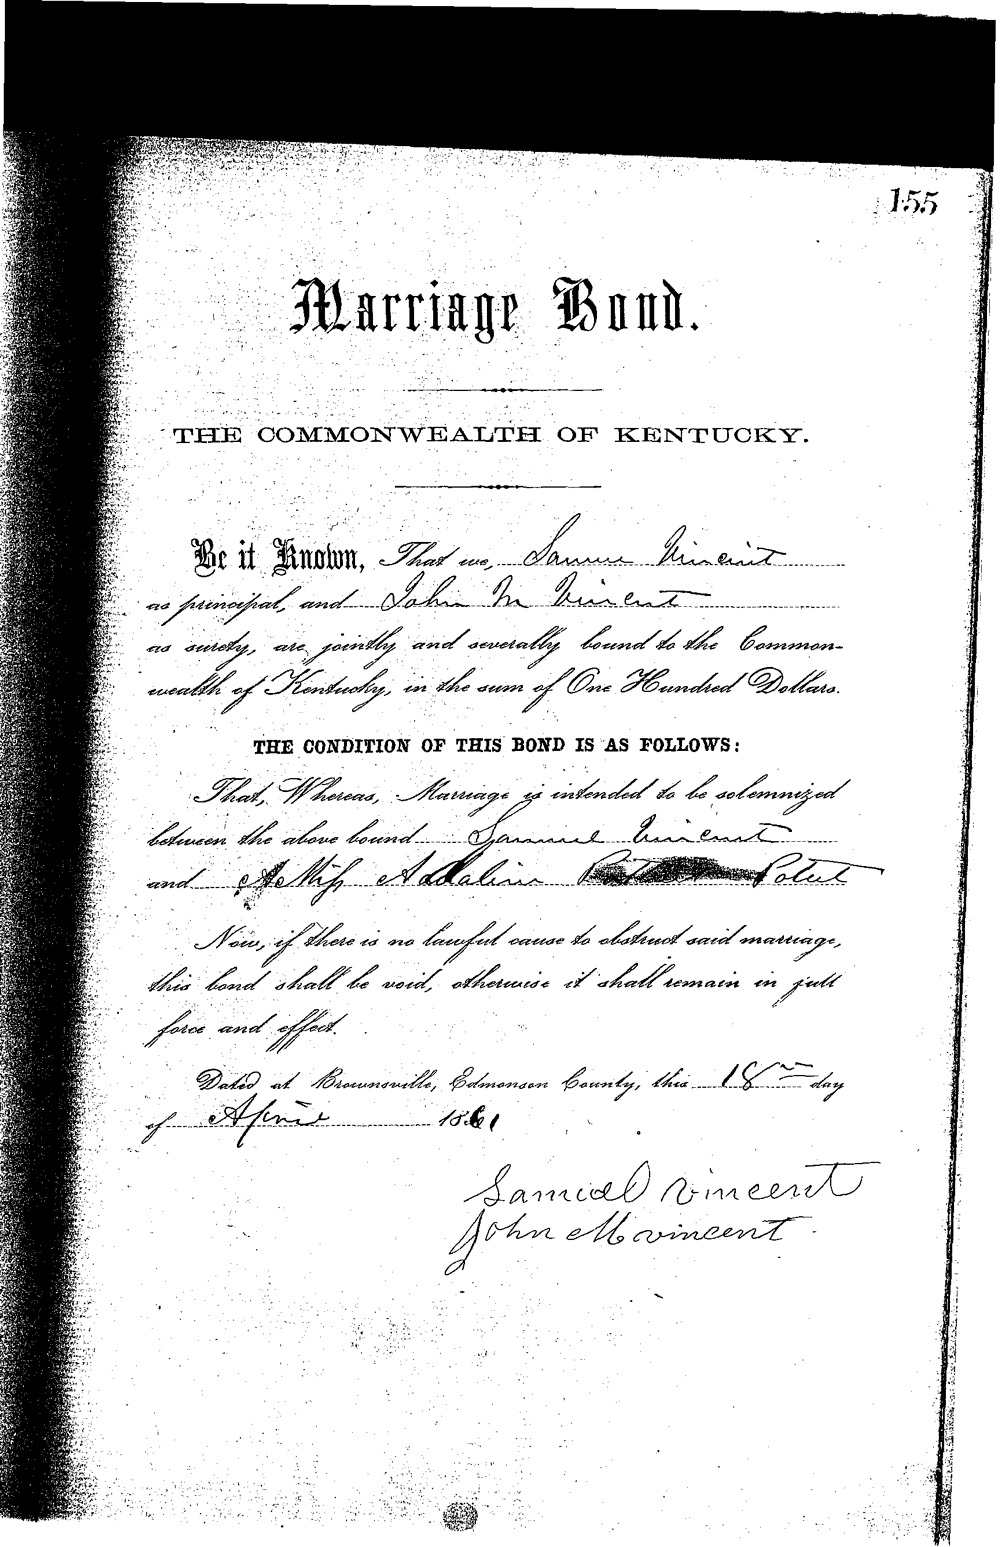 155
Marriage Bond.
THE COMMONWEALTH OF KENTUCKY.
Be it Known, That we, Samuel Vincent
as principal, and John M Vincent
as surety, are jointly and severally bound to the Common-
wealth of Kentucky, in the sum of One Hundred Dollars.
THE CONDITION OF THIS BOND IS AS FOLLOWS:
That, Whereas, Marriage is intended to be solemnized
between the above bound Samuel Vincent
and Miss Addaline Poteet
Now, if there is no lawful cause to obstruct said marriage,
this bond shall be void, otherwise it shall remain in full
force and effect.
Dated at Brownsville, Edmonson County, this 18 day
of April 1861
Samuel Vincent
John M Vincent